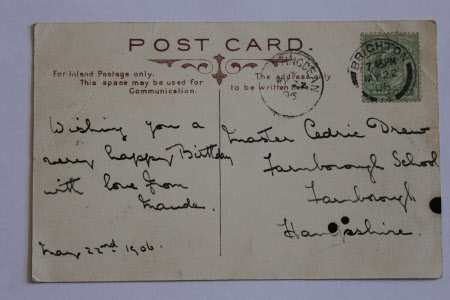 POST CARD.
For Inland Postage only.
This space may be used for
Communication.
The address only
to be written here.
BRIGHTON
7.15PM
MY 22
06
Wishing you a
very happy Birthday
with love from
Maude.
May 22nd 1906.
Master Cedric Drew
Farnborough School
Farnborough
Hampshire.